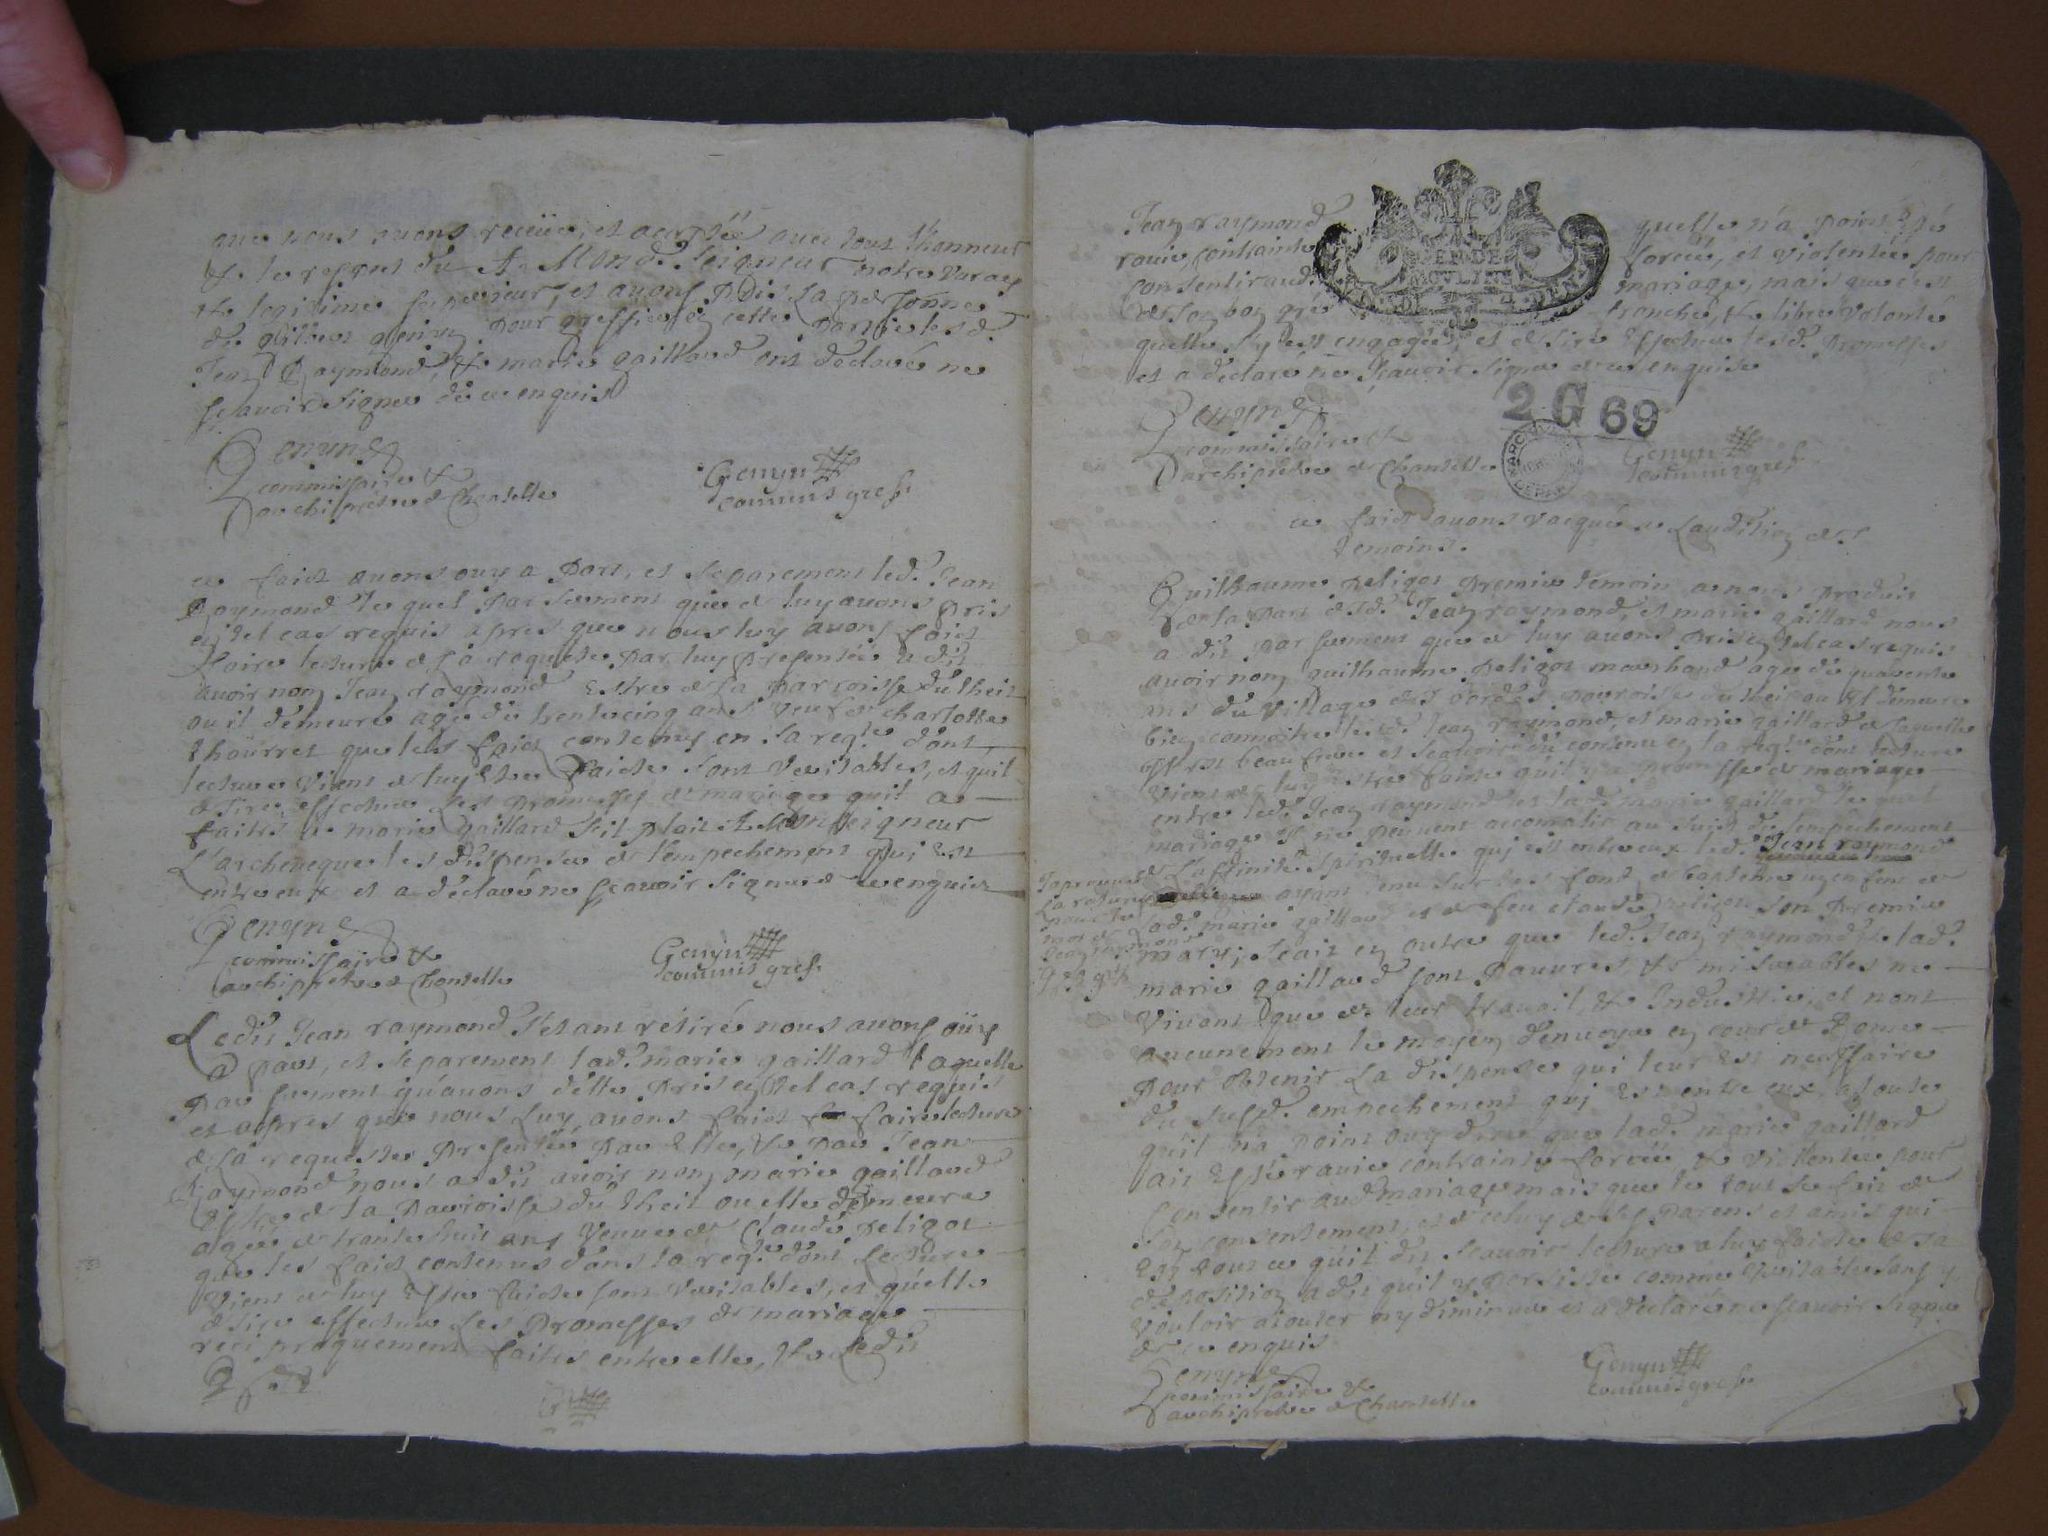 que nous avons receüe, et acceptée avec tout l'honneur
& le respect dû A Mond. Seigneur notre vray
& legitime superieur, et avons pris la personne
de gilbert genin pour greffier en cette partie lesd.
Jean Raymond, & marie gaillard ont declaré ne
scavoir signer de ce enquis
Genyn
commissaire &
archiprètre de Chantelle
Genyn
commis gref.
ce faict avons ouy a part, et separement led. Jean
Raymond lequel par serment que de luy avons pris
en tel cas requis apres que nous luy avons faict
faire lecture de la requeste par luy presentée a dit
avoir nom Jean raymond estre de la parroisse du theil
ou il demeure agé de trente cinq ans veuf de charlotte
thourret que les faict contenus en la reqte dont
lecture vient de luy estre faicte sont veritables, et quil
desire effectuer les promesses de mariage quil a
faites a marie gaillard s'il plait A Monseigneur
L'archeveque les dispenser de l'empechement qui est
entre eux et a declaré ne scavoir signer de ce enquis
Genyn
commissaire &
archiprètre de Chantelle
Genyn
commis gref.
Ledit Jean raymond s'etant rétiré nous avons oüy
a part, et separement lad. marie gaillard laquelle
par serment qu'avons d'elle pris en tel cas requis
et apres que nous luy avons faict faire lecture
de la requeste presentée par elle, & par Jean
Raymond nous a dit avoir nom marie gaillard
estre de la parroisse du theil ou elle demeure
agée de trante huit ans veuve de Claude peligot
que les faict contenus dans la reqte dont lecture
vient de luy estre faicte sont veritables, et qu'elle
desire effectuer les promesses de mariage
reciproquement faites entre elle, & ledit
Jean raymond
quelle n'a point esté
ravie, contrainte
forcée, et violentée pour
consentir aud.
mariage, mais que c'est
de son bon gré
franche, & libre volonté
GEN. DE
MOVLINS
quelle s'y est engagée, et desire effectuer lesd. promesses
et a declaré ne scavoir signer de ce enquise
2 G 69
Genyn
commissaire &
archiprètre de Chantelle
Genyn
commis gref.
ce faict avons vacqué a l'audition des
temoins.
Guilhaume peligot premier témoin a nous produit
par la part desd. Jean raymond, et marie gaillard nous
a dit par serment que de luy avons pris en tel cas requis
avoir nom guilhaume peligot marchand agé de quarente
ans du village des bordes parroisse du theil ou il demeure
bien connoitre led. Jean raymond, et marie gaillard de laquelle
il est beau frere et scavoir du contenu en la reqte dont lecture
vient de luy estre faicte quil y a promesse de mariage
entre led. Jean raymond et lad. marie gaillard lequel
mariage ils ne peuvent accomplir au sujet de l'empechement
de l'affinité spirituelle qui est entre eux led. Jean raymond
ayant tenu sur les fonts de bapteme un enfent de
lad. marie gaillard et de feu claude peligot son premier
mary, scait en outre que led. Jean raymond, & lad.
marie gaillard sont pauvres, & miserables ne
vivant que de leur travail, & industrie, et n'ont
aucunement le moyen d'envoyer en cour de Rome
pour obtenir la dispense qui leur est necessaire
du susd. empechement qui est entre eux, ajoute
qu'il n'a point ouy dire que lad. marie gaillard
ait esté ravie contrainte forcée, & violentée pour
consentir aud. mariage mais que le tout se fait de
son consentement, et de celuy de ses parens et amis qui
est tout ce qu'il dit scavoir lecture a luy faicte de sa
déposition a dit qu'il y persiste comme veritable sans y
vouloir ajouter ny diminuer et a declaré ne scavoir signer
de ce enquis
Genyn
commissaire &
archiprètre de Chantelle
Genyn
commis gref.